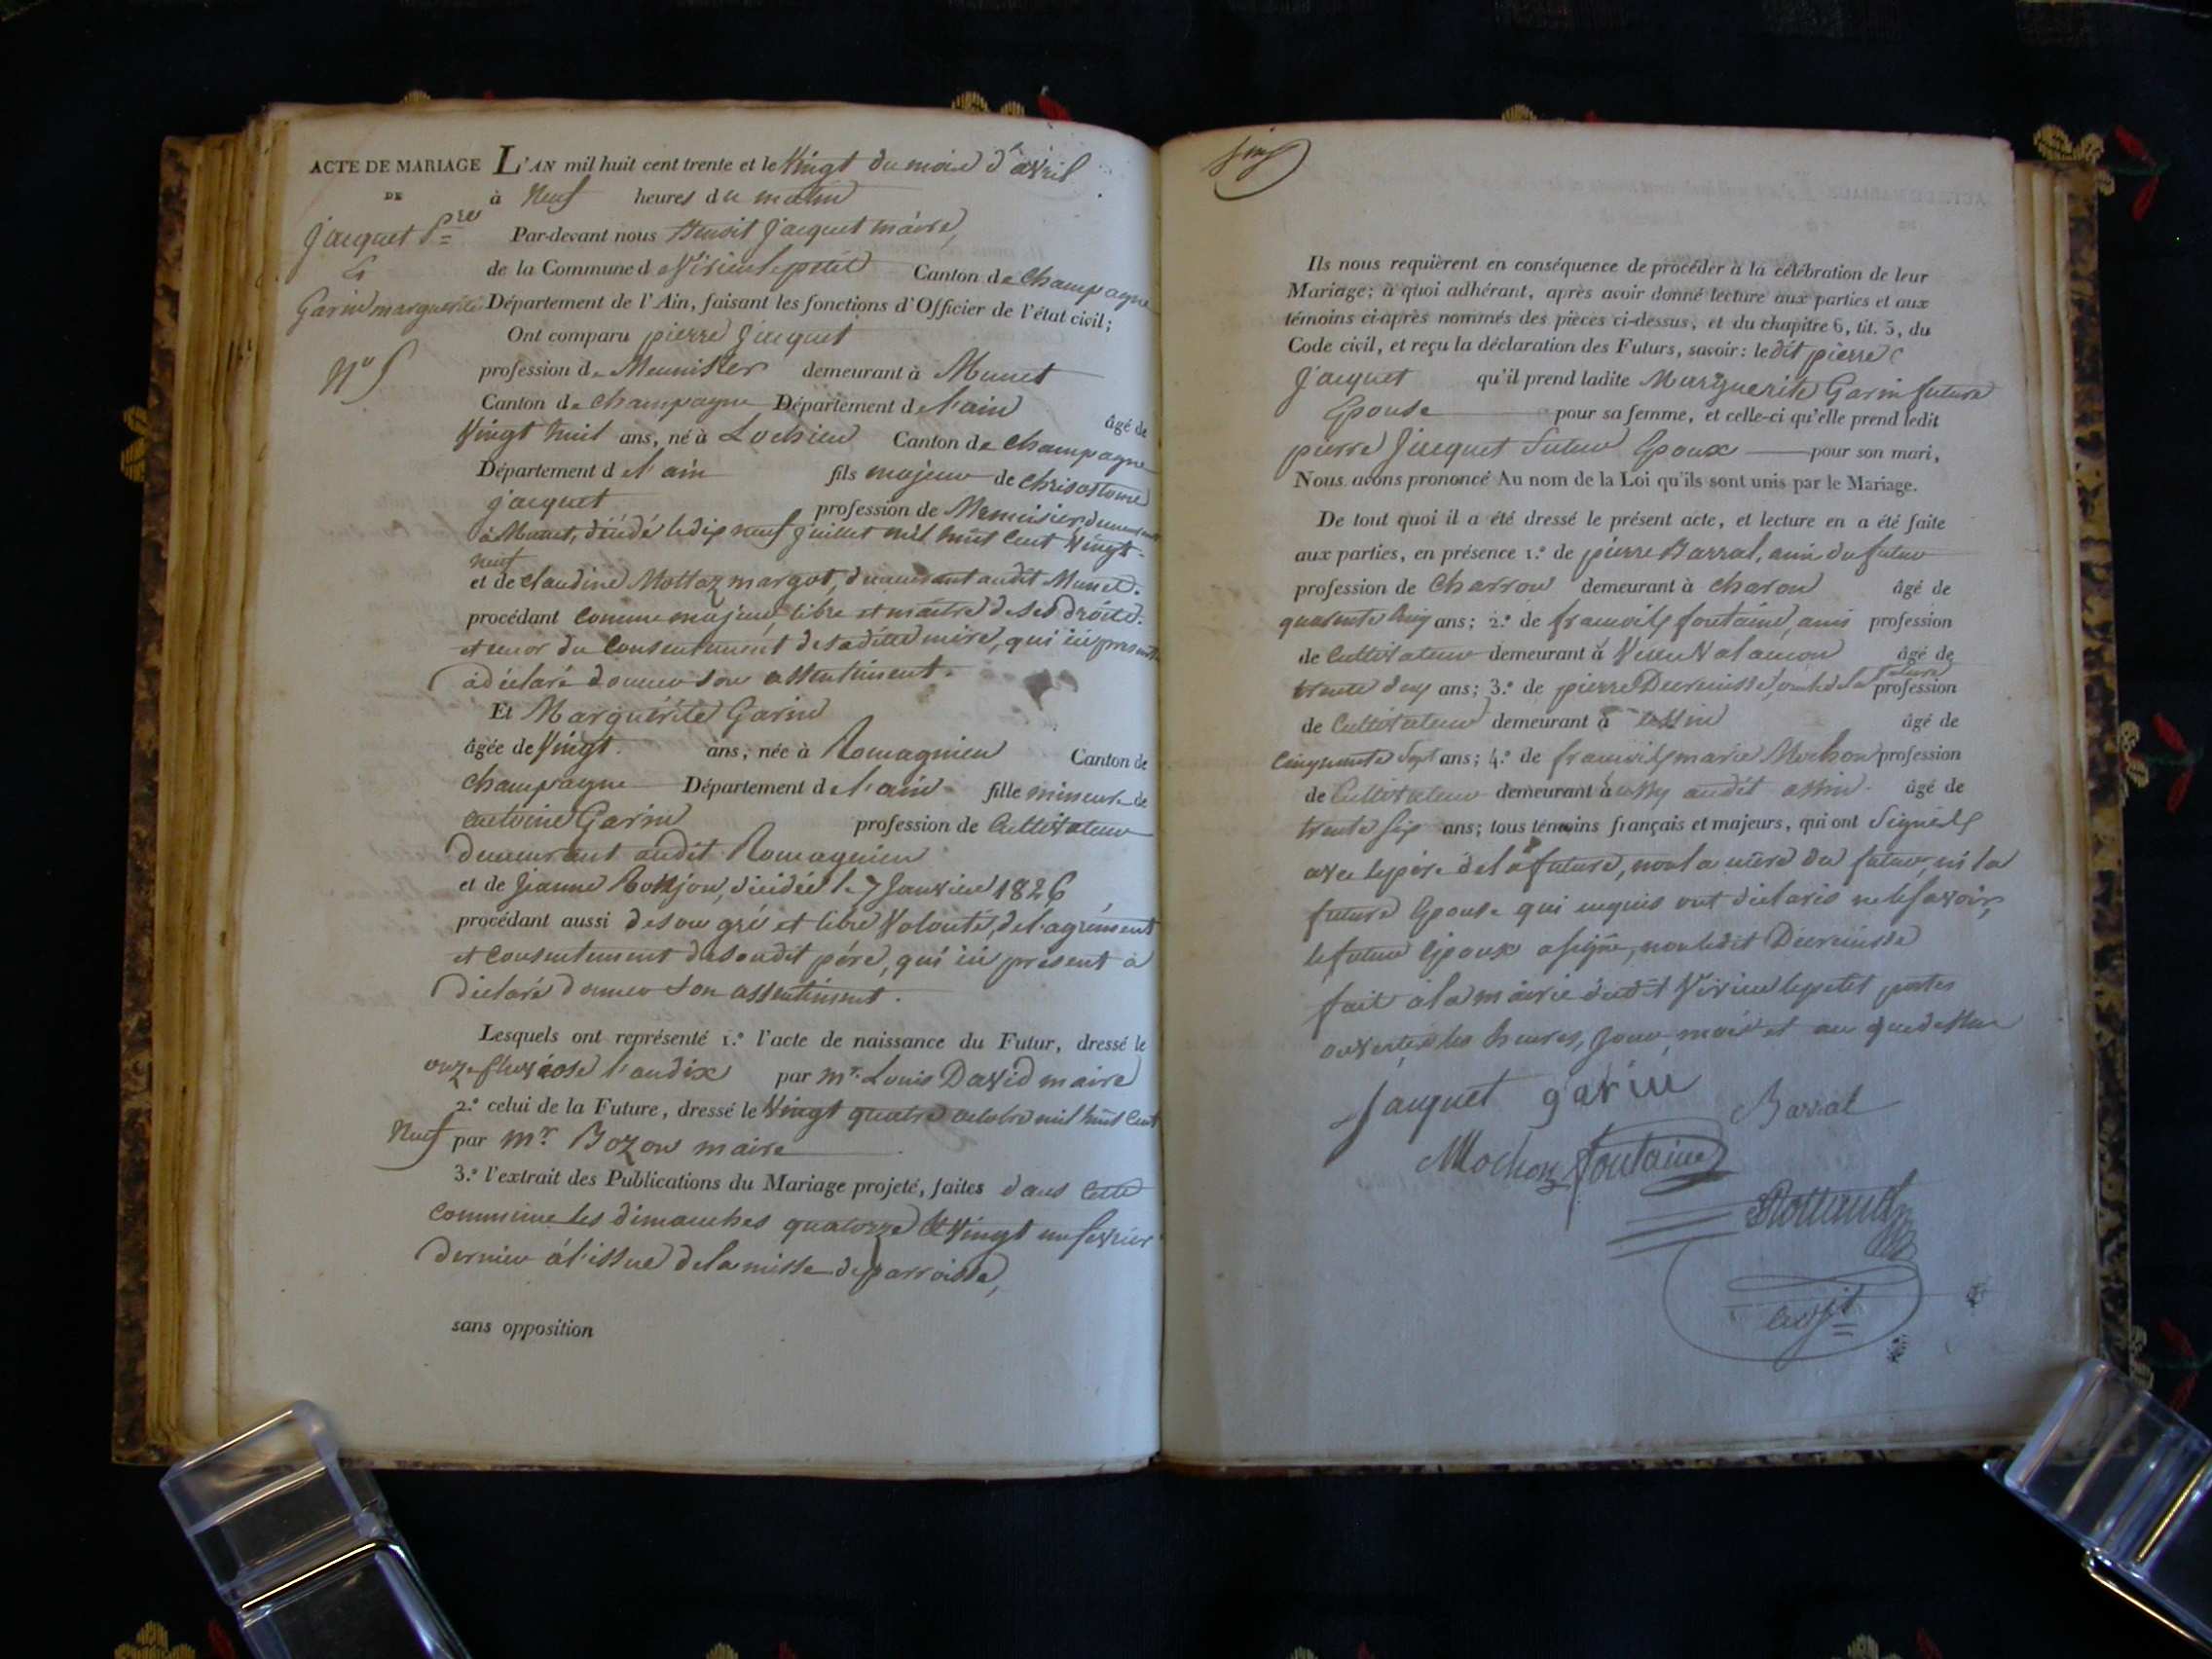 ACTE DE MARIAGE L'AN mil huit cent trente et le Vingt du mois d'avril
DE à Neuf heures du matin
Jacquet Pre Par-devant nous Benoit Jacquet maire,
& de la Commune de Virieulepetit Canton de Champagne
Garin marguerite Département de l'Ain, faisant les fonctions d'Officier de l'état civil;
Ont comparu pierre Jacquet
No 5 profession de Meunisier demeurant à Munet
Canton de Champagne Département de l'ain âgé de
Vingt huit ans, né à Lochieu Canton de Champagne
Département d el'ain fils majeur de Chrisostome
Jacquet profession de Menuisier, demeurant
à Munet, décédé le dix neuf Juillet mil huit Cent Vingt-
neuf
et de Claudine Mottaz margot, demeurant audit Munet.
procédant Comme majeur, libre et maître de ses droits.
et encor du Consentement de sadite mère, qui ici présente
à déclaré donner son assentiment.
Et Marguérite Garin
âgée de Vingt. ans, née à Romagnieu Canton de
Champagne Département de l'ain fille mineure de
antoine Garin profession de Cultivateur
demeurant audit Romagnieu
et de Jeanne décidée le 7 Janvier 1826
procédant aussi de son gré et libre Volonté, de l'agrément
et Consentement de sondit père, qui ici présent à
déclaré donner son assentiment.
Lesquels ont représenté 1.° l'acte de naissance du Futur, dressé le
onze pluviose l'an dix par mr. Louis David maire
2.° celui de la Future, dressé le Vingt quatre octobre mil huit Cent
Neuf par mr. Bozon maire
3.° l'extrait des Publications du Mariage projeté, faites dans Cette
Commune les dimanches quatorze & Vingt un fevrier
dernier à l'issue de la messe de parroisse,
sans opposition
Ils nous requièrent en conséquence de procéder à la célébration de leur
Mariage; à quoi adhérant, après avoir donné lecture aux parties et aux
témoins ci-après nommés des pièces ci-dessus, et du chapitre 6, tit. 5, du
Code civil, et reçu la déclaration des Futurs, savoir: ledit pierre
Jacquet qu'il prend ladite Marguerite Garin future
Epouse pour sa femme, et celle-ci qu'elle prend ledit
pierre Jacquet futur Epoux pour son mari,
Nous avons prononcé Au nom de la Loi qu'ils sont unis par le Mariage.
De tout quoi il a été dressé le présent acte, et lecture en a été faite
aux parties, en présence 1.° de pierre Barral, ami du futur
profession de Charron demeurant à Charon âgé de
quarente Cinq ans; 2.° de francois fontaine, ami profession
de Cultivateur demeurant à âgé de
trente deux ans; 3.° de pierre Decruisse, oncle de la future profession
de Cultivateur demeurant à assin âgé de
Cinquante Sept ans; 4.° de francois marie Mochon profession
de Cultivateur demeurant à ussy audit assin. âgé de
trente six ans; tous témoins français et majeurs, qui ont Signés
avec le père de la future, non la mère du futur, ni la
future Epouse qui enquis ont déclaris ne le savoir,
le futur Epoux a signé, non ledit Décruisse
fait à la mairie dudit Virieulepetit portes
ouvertes les heures, Jour, mois et an que dessus
Jacquet garin Barral
Mochon fontaine